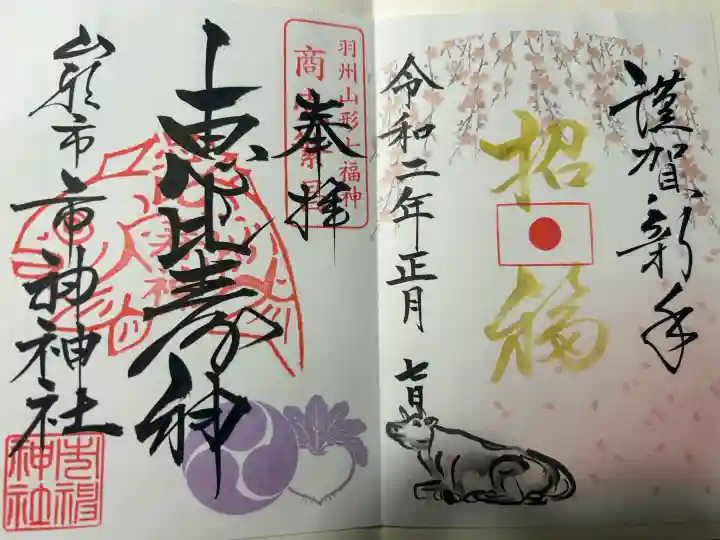 謹賀新年
招福
令和二年正月
七日
羽州山形七福神
奉拝
恵比寿神
山形市
市神神社